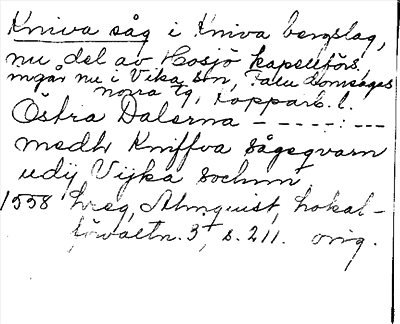 Kniva såg i Kniva bergslag,
nu del av Hosjö kapellförs.
ingår nu i Vika sn, Falu domsagas
norra tg, Kopparb. l.
Östra Dalarna - - - - - : - - -
medh Kniffva sågeqvarn
udij Vijka sochnn
1558 hreg, Almquist, Lokal-
förvaltn. 3, s. 211. orig.